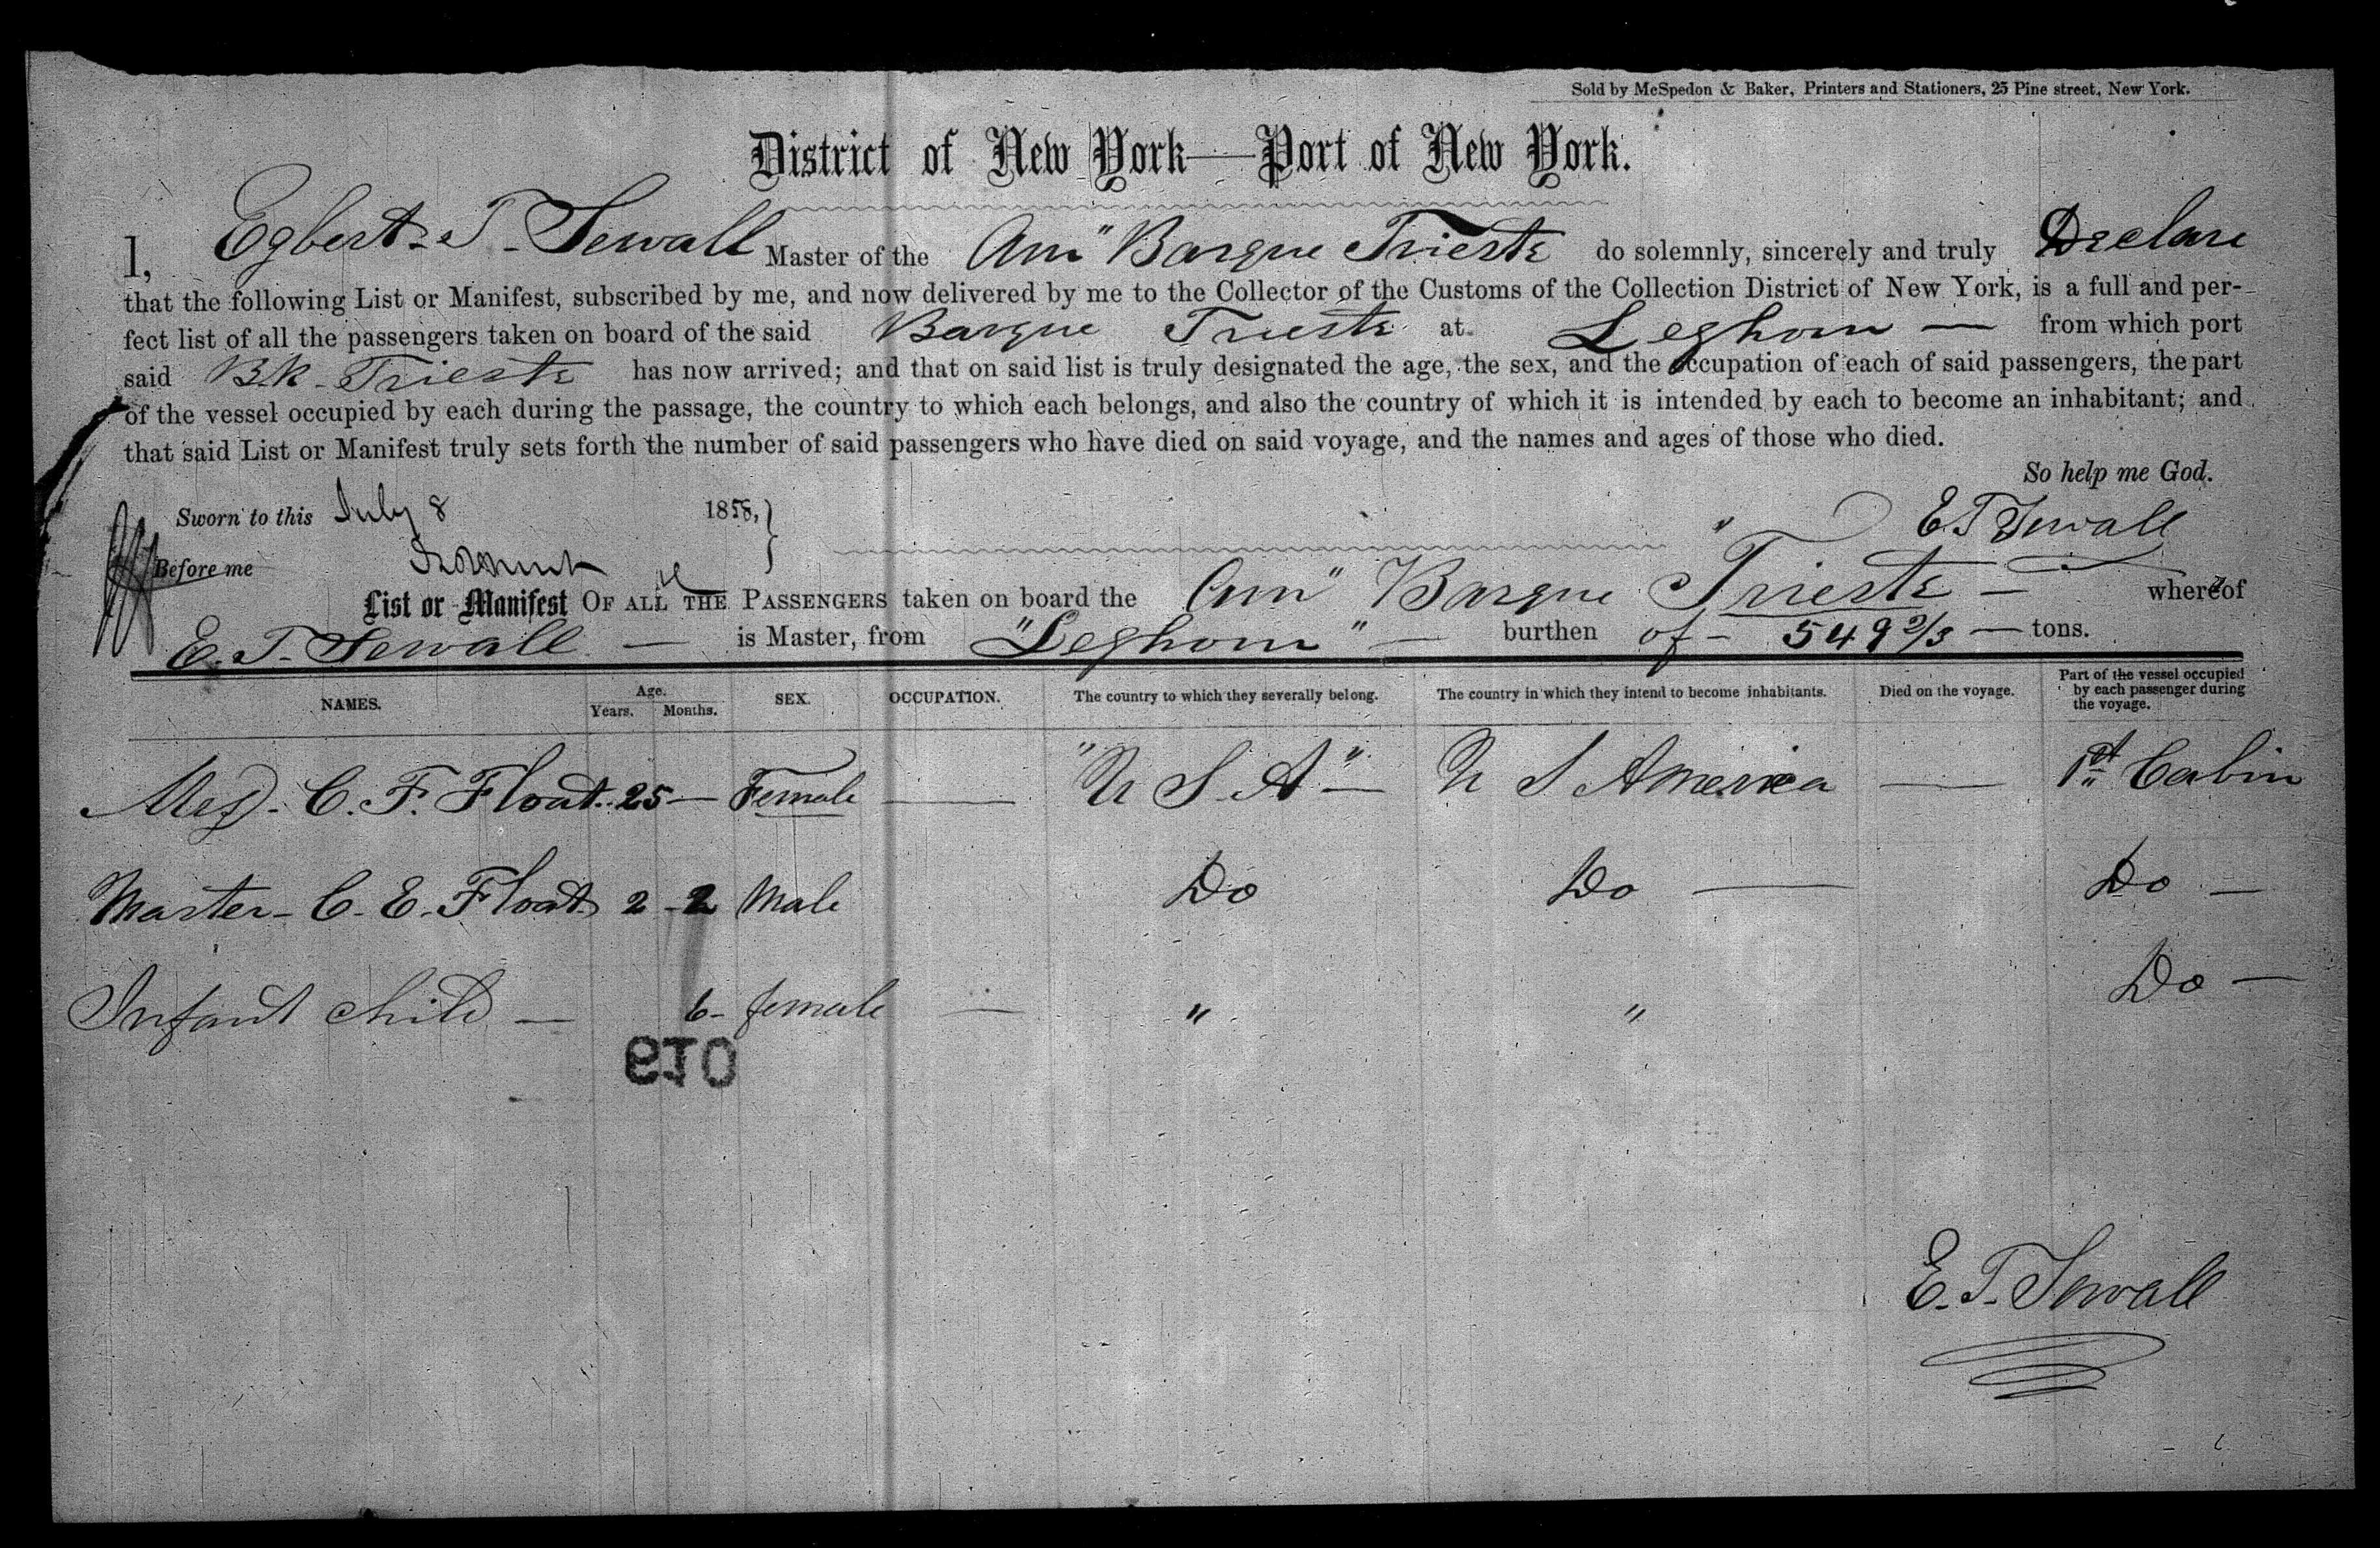 Sold by McSpedon & Baker, Printers and Stationers, 25 Pine street, New York.
District of New York—Port of New York.
I, Egbert T. Sewall Master of the Am" Barque Trieste do solemnly, sincerely and truly Declare
that the following List or Manifest, subscribed by me, and now delivered by me to the Collector of the Customs of the Collection District of New York, is a full and per-
fect list of all the passengers taken on board of the said Barque Trieste at Leghorn — from which port
said Bk. Trieste has now arrived; and that on said list is truly designated the age, the sex, and the occupation of each of said passengers, the part
of the vessel occupied by each during the passage, the country to which each belongs, and also the country of which it is intended by each to become an inhabitant; and
that said List or Manifest truly sets forth the number of said passengers who have died on said voyage, and the names and ages of those who died.
So help me God.
Sworn to this July 8 1858, E T Sewall
Before me
List or Manifest OF ALL THE PASSENGERS taken on board the Am" Barque Trieste — whereof
E. T. Sewall — is Master, from "Leghorn" — burthen of — 549 2/3 — tons.
NAMES. Age. Years. Months. SEX. OCCUPATION. The country to which they severally belong. The country in which they intend to become inhabitants. Died on the voyage. Part of the vessel occupied by each passenger during the voyage.
C. F. Float. 25 — Female — "U S A" — U S America — 1st Cabin
Master C. E. Float 2 - 2 Male Do Do — Do —
Infant child — 6 - female — " " Do —
019
E. T. Sewall